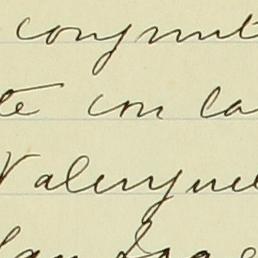 conjunt
te con la
Valenzuel